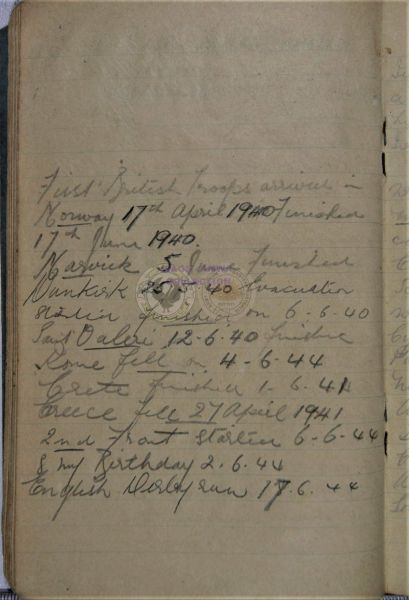 First British Troops arrived in
Norway 17th April 1940 Finished
17th June 1940.
Narvick 5 June Finished
Dunkirk 25-5-40 Evacuation
finished on 6-6-40
Saint Valeri 12-6-40 finished
Rome fell on 4-6-44
Crete finished 1-6-41
Greece fell 27 April 1941
2nd Front started 6-6-44
& my Birthday 2.6.44
English Derby run 17.6.44